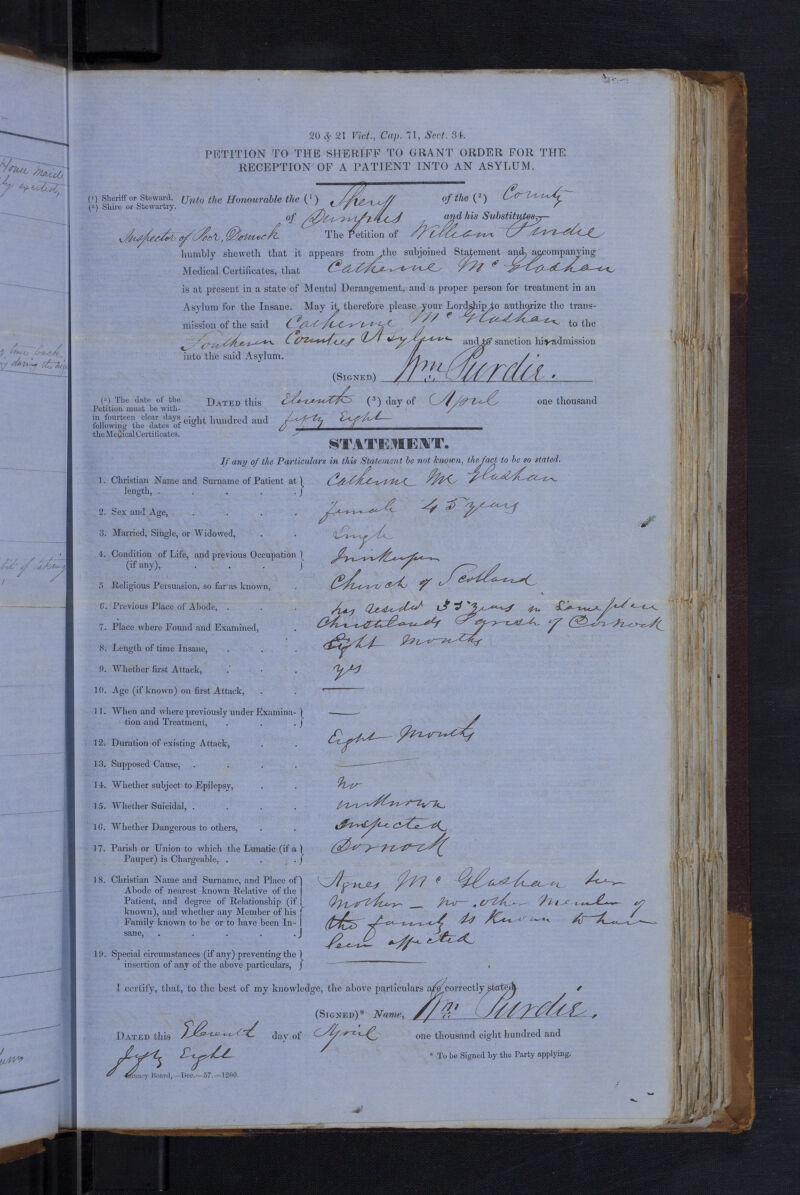 20 & 21 Vict., Cap. 71, Sect. 34.
PETITION TO THE SHERIFF TO GRANT ORDER FOR THE
RECEPTION OF A PATIENT INTO AN ASYLUM.
(1) Sheriff or Steward.
(2) Shire or Stewartry.
Unto the Honourable the (1) Sheriff of the (2) County
of Dumfries and his Substitutes,—
Inspector of Poor, Dornock The Petition of William Purdie
humbly sheweth that it appears from the subjoined Statement and accompanying
Medical Certificates, that Catherine Mc Glashan
is at present in a state of Mental Derangement, and a proper person for treatment in an
Asylum for the Insane. May it therefore please your Lordship to authorize the trans-
mission of the said Catherine Mc Glashan to the
Southern Counties Asylum and to sanction his admission
into the said Asylum.
(SIGNED) Wm. Purdie.
(3) The date of the
Petition must be with-
in fourteen clear days
following the dates of
the Medical Certificates.
DATED this Eleventh (3) day of April one thousand
eight hundred and fifty Eight
STATEMENT.
If any of the Particulars in this Statement be not known, the fact to be so stated.
1. Christian Name and Surname of Patient at
length, Catherine Mc Glashan
2. Sex and Age, female 45 years
3. Married, Single, or Widowed, Single
4. Condition of Life, and previous Occupation
(if any), Innkeeper
5 Religious Persuasion, so far as known, Church of Scotland
6. Previous Place of Abode, has resided 35 years in Same place
7. Place where Found and Examined, Parish of Dornock
8. Length of time Insane, Eight Months
9. Whether first Attack, yes
10. Age (if known) on first Attack, —
11. When and where previously under Examina-
tion and Treatment, —
12. Duration of existing Attack, Eight Months
13. Supposed Cause, —
14. Whether subject to Epilepsy, No
15. Whether Suicidal, unknown
16. Whether Dangerous to others, Suspected
17. Parish or Union to which the Lunatic (if a
Pauper) is Chargeable, Dornock
18. Christian Name and Surname, and Place of
Abode of nearest known Relative of the
Patient, and degree of Relationship (if
known), and whether any Member of his
Family known to be or to have been In-
sane,
Agnes Mc Glashan her
Mother — no other Member of
the family is Known to have
been affected
19. Special circumstances (if any) preventing the
insertion of any of the above particulars, —
I certify, that, to the best of my knowledge, the above particulars are correctly stated
(SIGNED)* Name, Wm. Purdie.
DATED this Eleventh day of April one thousand eight hundred and
fifty Eight
* To be Signed by the Party applying.
Lunacy Board,—Dec.—57.—1200.